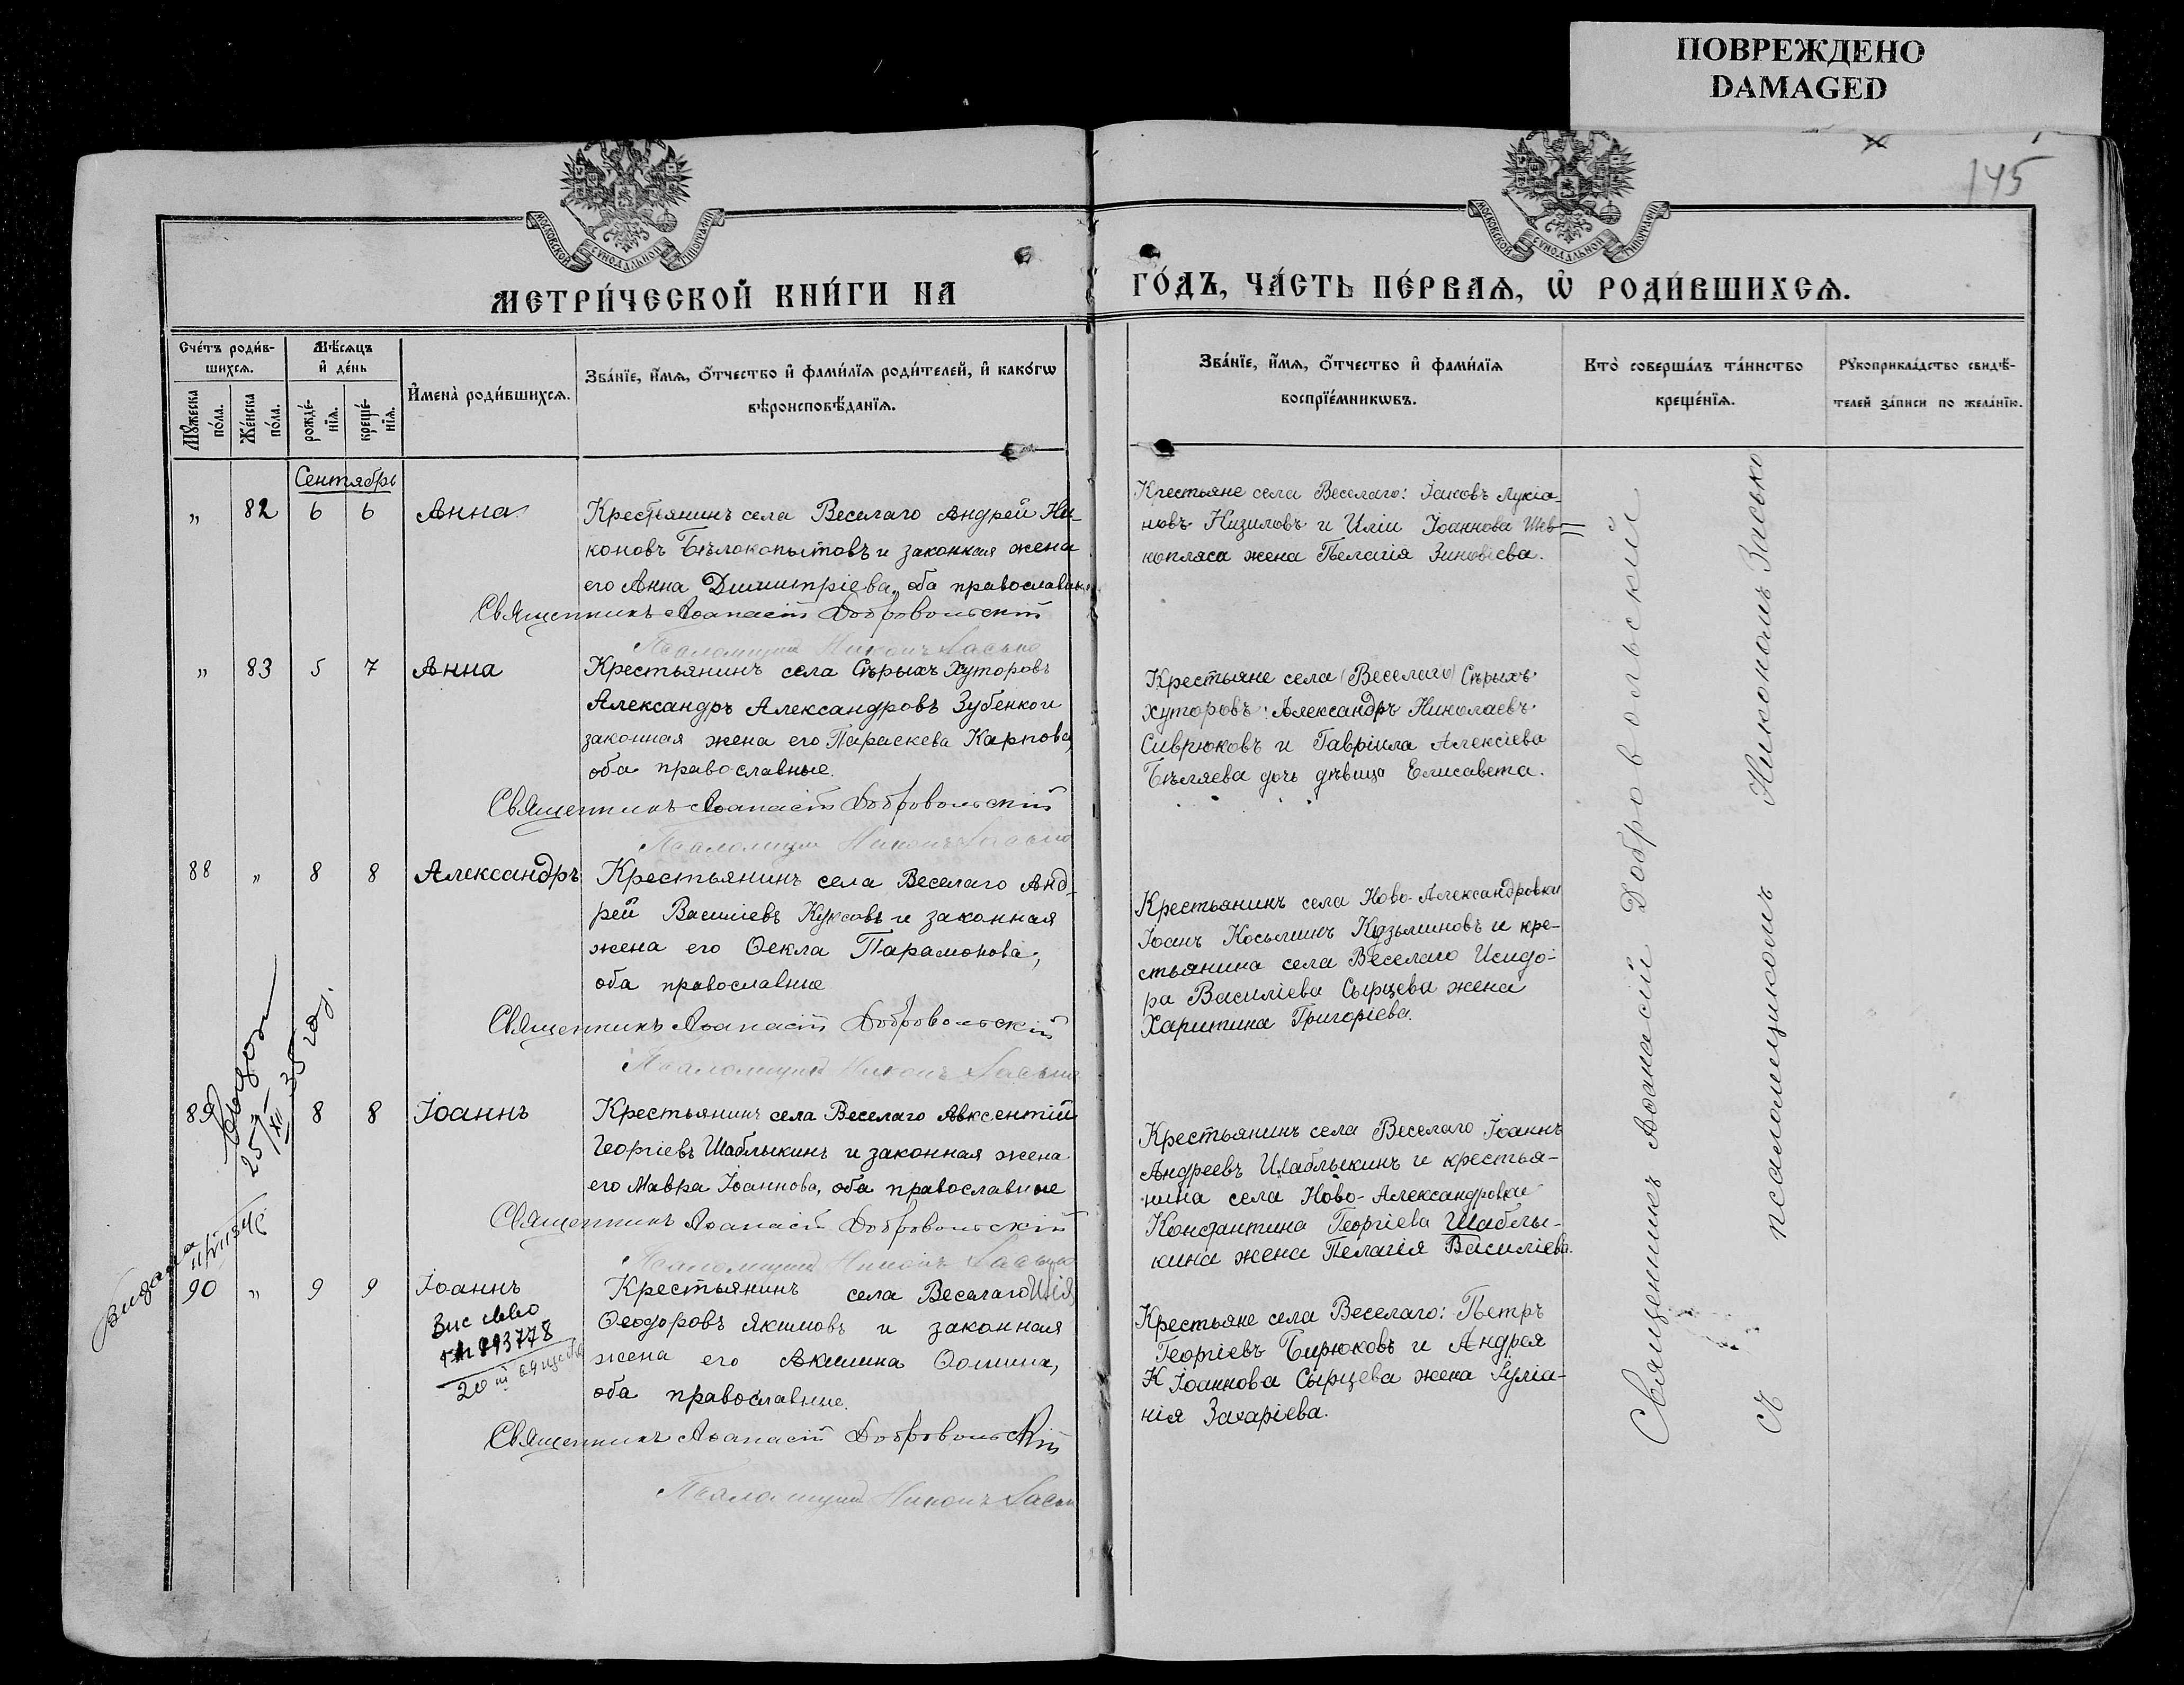 ПОВРЕЖДЕНО
DAMAGED
145
МОСКОВСКОЙ СѴНОДАЛЬНОЙ ТИПОГРАФІИ
МОСКОВСКОЙ СѴНОДАЛЬНОЙ ТИПОГРАФІИ
МЕТРИ́ЧЕСКОЙ КНИ́ГИ НА
ГО́ДЪ, ЧА́СТЬ ПЕ́РВАѦ, Ѡ҆ РОДИ́ВШИХСѦ.
Сче́тъ роди́в-
шихсѧ.
Мꙋ́жеска по́ла.
Же́нска по́ла.
Мѣ́сѧцъ
и҆ де́нь
рожде́-
нїѧ.
креще́-
нїѧ.
И҆мена̀ роди́вшихсѧ.
Зва́нїе, и҆́мѧ, ѻ҆́тчество и҆ фами́лїѧ роди́телей, и҆ како́гѡ
вѣроисповѣ́данїѧ.
Зва́нїе, и҆́мѧ, ѻ҆́тчество и҆ фами́лїѧ
воспрїе́мникѡвъ.
Кто̀ соверша́лъ та́инство
креще́нїѧ.
Рꙋкоприкла́дство свидѣ́-
телей за́писи по жела́нїю.
Сентябрь
„ 82 6 6 Анна
Крестьянинъ села Веселаго Андрей Ни-
коновъ Бѣлокопытовъ и законная жена
его Анна Димитріева, оба православные
Священникъ Аѳанасій Добровольскій
Псаломщикъ Никонъ Засько
Крестьяне села Веселаго: Іаковъ Лукіа-
новъ Низиловъ и Иліи Іоаннова Шев-
копляса жена Пелагія Зиновіева.
„ 83 5 7 Анна
Крестьянинъ села Сѣрыхъ Хуторовъ
Александръ Александровъ Зубенко и
законная жена его Параскева Карпова,
оба православные.
Священникъ Аѳанасій Добровольскій
Псаломщикъ Никонъ Засько
Крестьяне села (Веселаго) Сѣрыхъ
хуторовъ: Александръ Николаевъ
Сиврюковъ и Гавріила Алексіева
Бѣляева дочь дѣвица Елисавета.
88 „ 8 8 Александръ
Крестьянинъ села Веселаго Анд-
рей Василіевъ Куксовъ и законная
жена его Ѳекла Парамонова,
оба православные
Священникъ Аѳанасій Добровольскій
Псаломщикъ Никонъ Засько
Крестьянинъ села Ново-Александровки
Іоанъ Косьминъ Кузьминовъ и кре-
стьянина села Веселаго Исидо-
ра Василіева Сырцева жена
Харитина Григоріева.
89 8 8 Іоаннъ
25/XII 35
Крестьянинъ села Веселаго Авксентій
Георгіевъ Шаблыкинъ и законная жена
его Мавра Іоаннова, оба православные
Священникъ Аѳанасій Добровольскій
Псаломщикъ Никонъ Засько
Крестьянинъ села Веселаго Іоаннъ
Андреевъ Шаблыкинъ и крестья-
нина села Ново-Александровки
Константина Георгіева Шаблы-
кина жена Пелагія Василіева.
90 „ 9 9 Іоаннъ
Видана
Крестьянинъ села Веселаго Илія
Ѳеодоровъ Якимовъ и законная
жена его Акилина Ѳомина,
оба православные.
Священникъ Аѳанасій Добровольскій
Псаломщикъ Никонъ Засько
Крестьяне села Веселаго: Петръ
Георгіевъ Бирюковъ и Андрея
Іоаннова Сырцева жена Іуліа-
нія Захаріева.
Священникъ Аѳанасій Добровольскій
съ псаломщикомъ Никономъ Засько